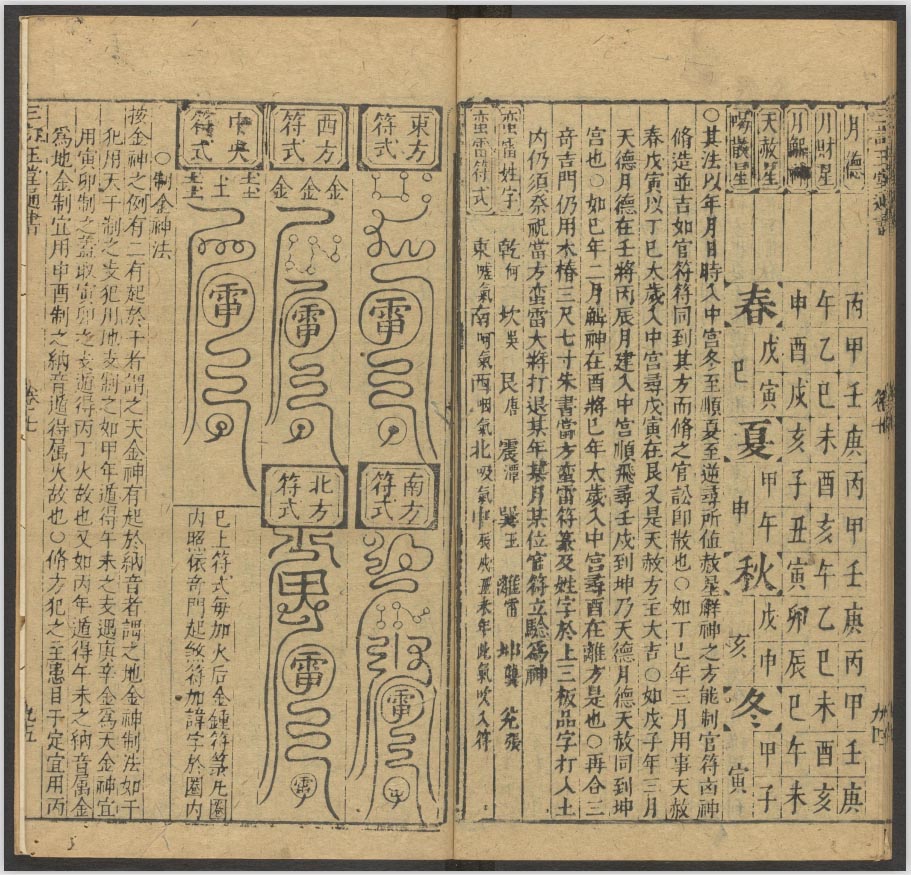 月德
丙甲壬庚丙甲壬庚丙甲壬庚
月財星
午乙巳未酉亥午乙巳未酉亥
月解神
申酉戌亥子丑寅卯辰巳午未
天赦星
戊寅甲午戊申甲子
星
春巳夏申秋亥冬寅
○其法以年月日時入中宮冬至順夏至逆尋所值赦星解神之方能制官符凶神
脩造並吉如官符符同到其方而脩之官訟卽散也○如丁巳年三月用事天赦
春戊寅以丁巳大歲入中宮尋戊寅在艮又是天赦方主大吉○如戊子年三月
天德月德在壬將丙辰月建入中宮順飛尋壬戌到坤乃天德月德天赦同到坤
宮也○如巳年二月觧神在酉將巳年太歲入中宮尋酉在離方是也○再合三
竒吉門仍用木樁三尺七寸朱書當方蛮雷符篆及姓字於上三板品字打入土
內仍須祭祝當方蛮雷大將打退某年某月某位官符立驗
蛮雷姓字
乾何 坎吳 艮唐 震潭 巽王 離雷 坤龔 兊張
蛮雷符式
東噓氣南呵氣西呬氣北吹氣
三 玉堂通書
卷七
東方符式
雷
西方符式
金金金
雷
中央符式
土
雷
南方符式
雷
北方符式
雷
雷
巳上符式毎加火后金鍾符篆凡圈
內照依竒門起煞符加諱字於圈內
○制金神法
按金神之例有二有起於干者謂之天金神有起於納音者謂之地金神制法如干
犯用天干制之支犯用地支制之如甲年遁得午未之支遇庚辛金爲天金神宜
用寅卯制之蓋取寅卯之支遁得丙丁火故也又如丙年遁得午未之納音属金
爲地金制宜用申酉制之納音遁得属火故也○脩方犯之主患目于定宜用丙
三 玉堂通書
卷七
九五